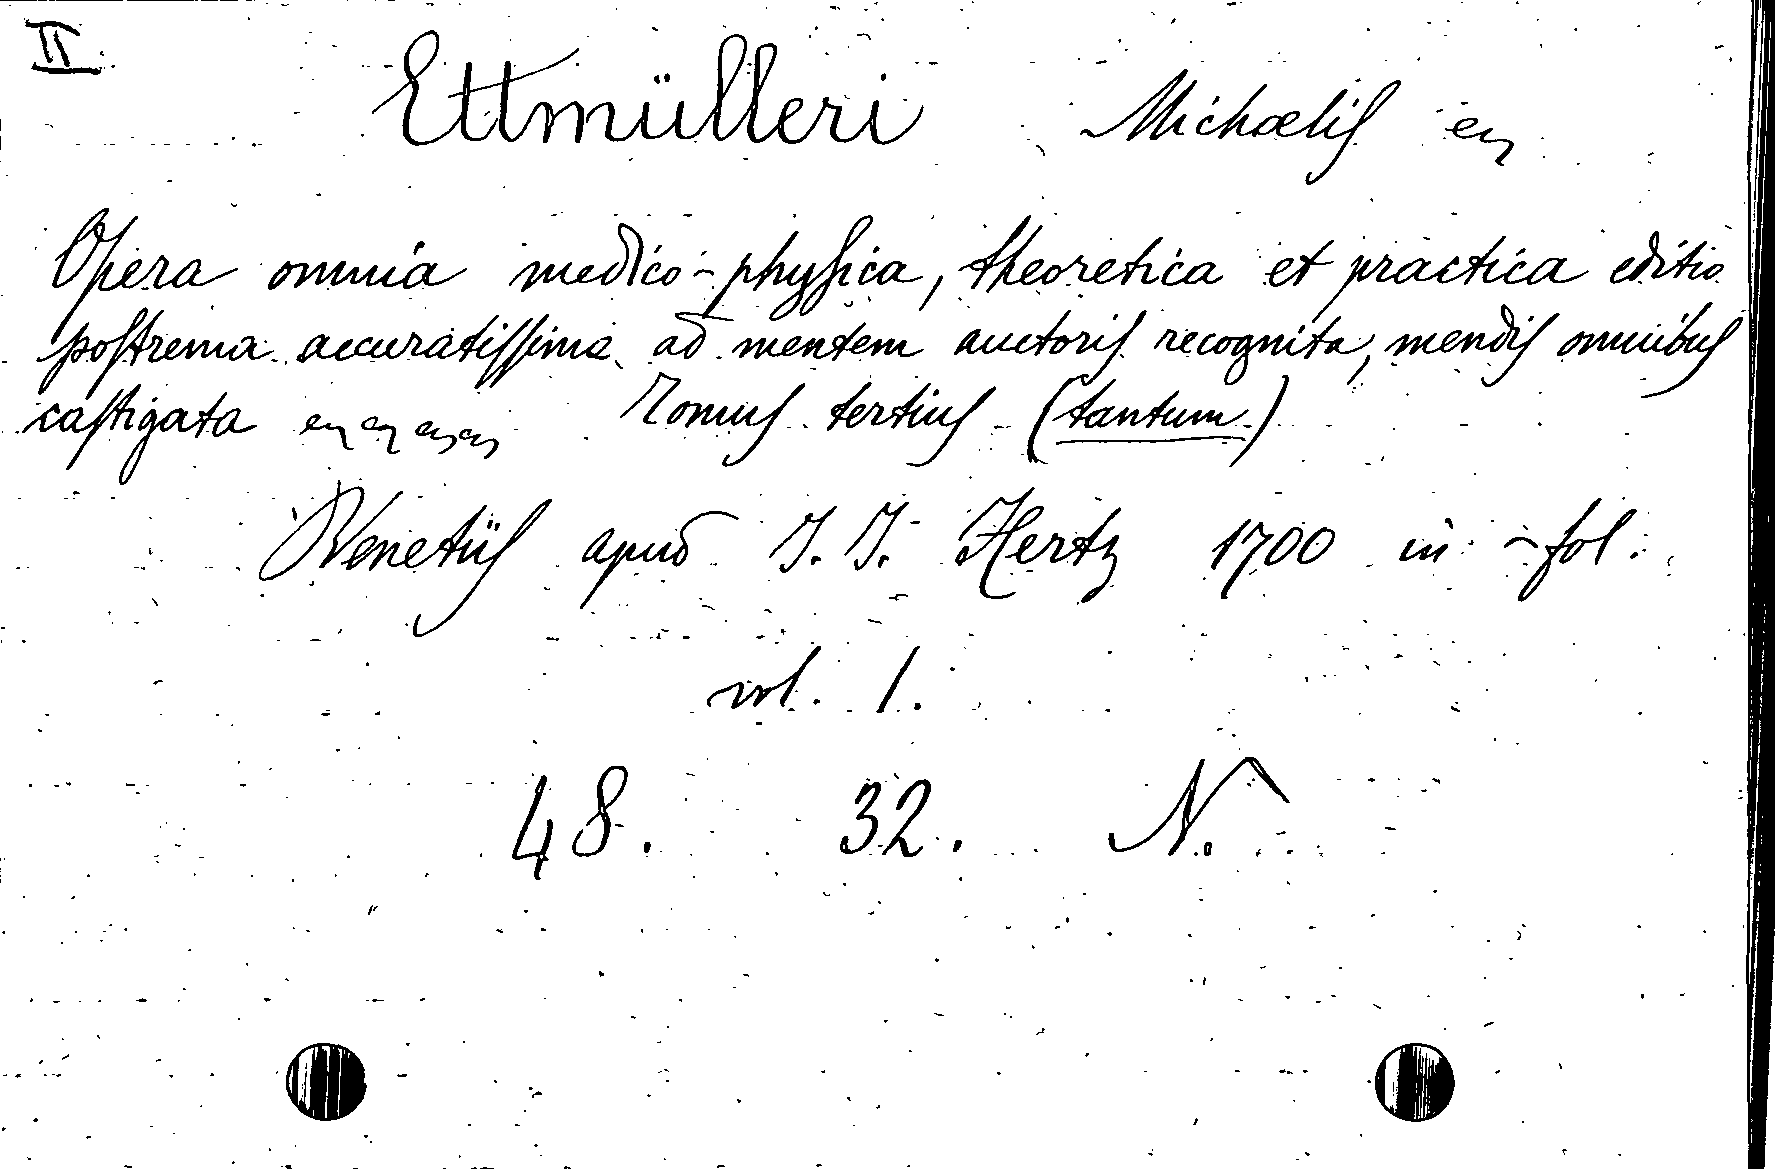 II.
Ettmülleri Michaelis
Opera omnia medico-physica, theoretica et practica editio
postrema accuratissima ad mentem auctoris recognita, mendis omnibus
castigata Tomus tertius (tantum.)
Venetiis apud J. J. Hertz 1700 in-fol.
vol. 1.
48. 32. N.